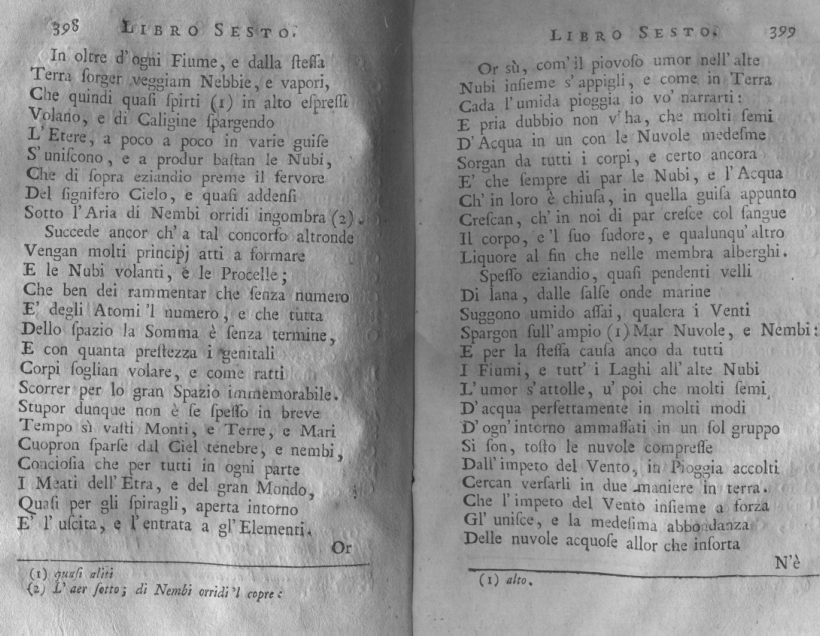 398 LIBRO SESTO.
In oltre d'ogni Fiume, e dalla steſſa
Terra ſorger veggiam Nebbie, e vapori,
Che quindi quaſi ſpirti (1) in alto eſpreſſi
Volano, e di Caligine ſpargendo
L'Etere, a poco a poco in varie guiſe
S'uniſcono, e a produr baſtan le Nubi,
Che di ſopra eziandio preme il fervore
Del ſignifero Cielo, e quaſi addenſi
Sotto l'Aria di Nembi orridi ingombra (2).
Succede ancor ch'a tal concorſo altronde
Vengan molti principj atti a formare
E le Nubi volanti, e le Procelle;
Che ben dei rammentar che ſenza numero
E' degli Atomi 'l numero, e che tutta
Dello ſpazio la Somma è ſenza termine,
E con quanta preſtezza i genitali
Corpi ſoglian volare, e come ratti
Scorrer per lo gran Spazio immemorabile.
Stupor dunque non è ſe ſpeſſo in breve
Tempo sì vaſti Monti, e Terre, e Mari
Cuopron ſparſe dal Ciel tenebre, e nembi,
Concioſia che per tutti in ogni parte
I Meati dell'Etra, e del gran Mondo,
Quaſi per gli ſpiragli, aperta intorno
E' l'uſcita, e l'entrata a gl'Elementi.
Or
(1) quaſi aliti
(2) L'aer ſotto; di Nembi orridi 'l copre:
LIBRO SESTO. 399
Or sù, com'il piovoſo umor nell'alte
Nubi inſieme s'appigli, e come in Terra
Cada l'umida pioggia io vo' narrarti:
E pria dubbio non v'ha, che molti ſemi
D'Acqua in un con le Nuvole medeſme
Sorgan da tutti i corpi, e certo ancora
E' che ſempre di par le Nubi, e l'Acqua
Ch'in loro è chiuſa, in quella guiſa appunto
Creſcan, ch'in noi di par creſce col ſangue
Il corpo, e 'l ſuo ſudore, e qualunqu'altro
Liquore al fin che nelle membra alberghi.
Speſſo eziandio, quaſi pendenti velli
Di lana, dalle ſalſe onde marine
Suggono umido aſſai, qualora i Venti
Spargon ſull'ampio (1) Mar Nuvole, e Nembi:
E per la ſteſſa cauſa anco da tutti
I Fiumi, e tutt'i Laghi all'alte Nubi
L'umor s'attolle, u' poi che molti ſemi
D'acqua perfettamente in molti modi
D'ogn'intorno ammaſſati in un ſol gruppo
Si ſon, toſto le nuvole compreſſe
Dall'impeto del Vento, in Pioggia accolti
Cercan verſarli in due maniere in terra.
Che l'impeto del Vento inſieme a forza
Gl'uniſce, e la medeſima abbondanza
Delle nuvole acquoſe allor che inſorta
N'è
(1) alto.